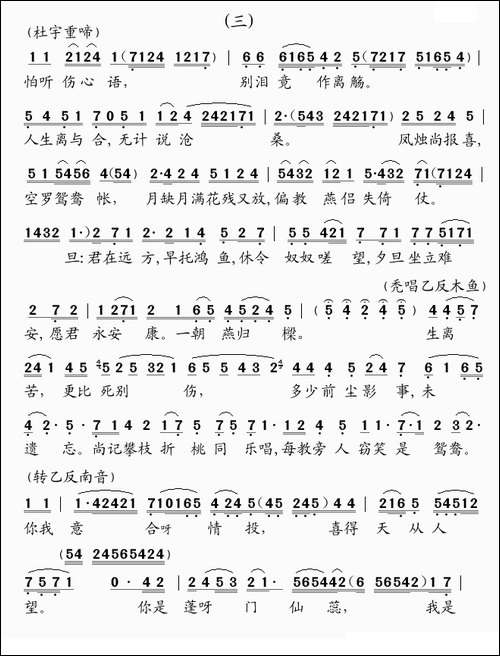 (三)
(杜宇重啼)
1 1 2124 1(7124 1217) | 6 6 6165 4 2 5(7217 5165 4) |
怕听 伤心 语， 别泪 竟 作离觞。
5 4 51 7051 124 242171 | 2·(543 242171) 25 24 5 |
人生离与 合，无计 说 沧 桑。 凤烛尚报喜，
51 5456 4(54) 2·424 5124 | 5432 121 5·432 71(7124
空罗鸳鸯 帐， 月缺月满花残又放，偏教 燕侣 失倚 仗。
1432 1·)271 2·214 527 | 55 421 7 271 775171
旦：君在远 方，早托鸿 鱼，休令 奴奴嗟 望，夕旦坐立难
(秃唱乙反木鱼)
272 | 1271 2 165 4524 5 | (54245) | 4457
安，愿君 永安 康。一朝 燕归 樑。 生离
241 45 4525 321 655432 | 444 524 7 6165
苦， 更比 死别 伤， 多少前 尘影 事，未
42·5·7142 175 7571·124 5 11·71 232·
遗 忘。尚记攀枝 折 桃同 乐唱，每教旁 人 窃笑 是 鸳鸯。
(转乙反南音)
1 1 | 1·42421 710165 4245(45 245)44 | 2165 54512
你我 意 合呀 情 投， 喜得 天 从人
(54 24565424)
7571 0·42 | 2453 21· 565442(6 56542)17 |
望。 你是 蓬呀 门 仙 蕊， 我是